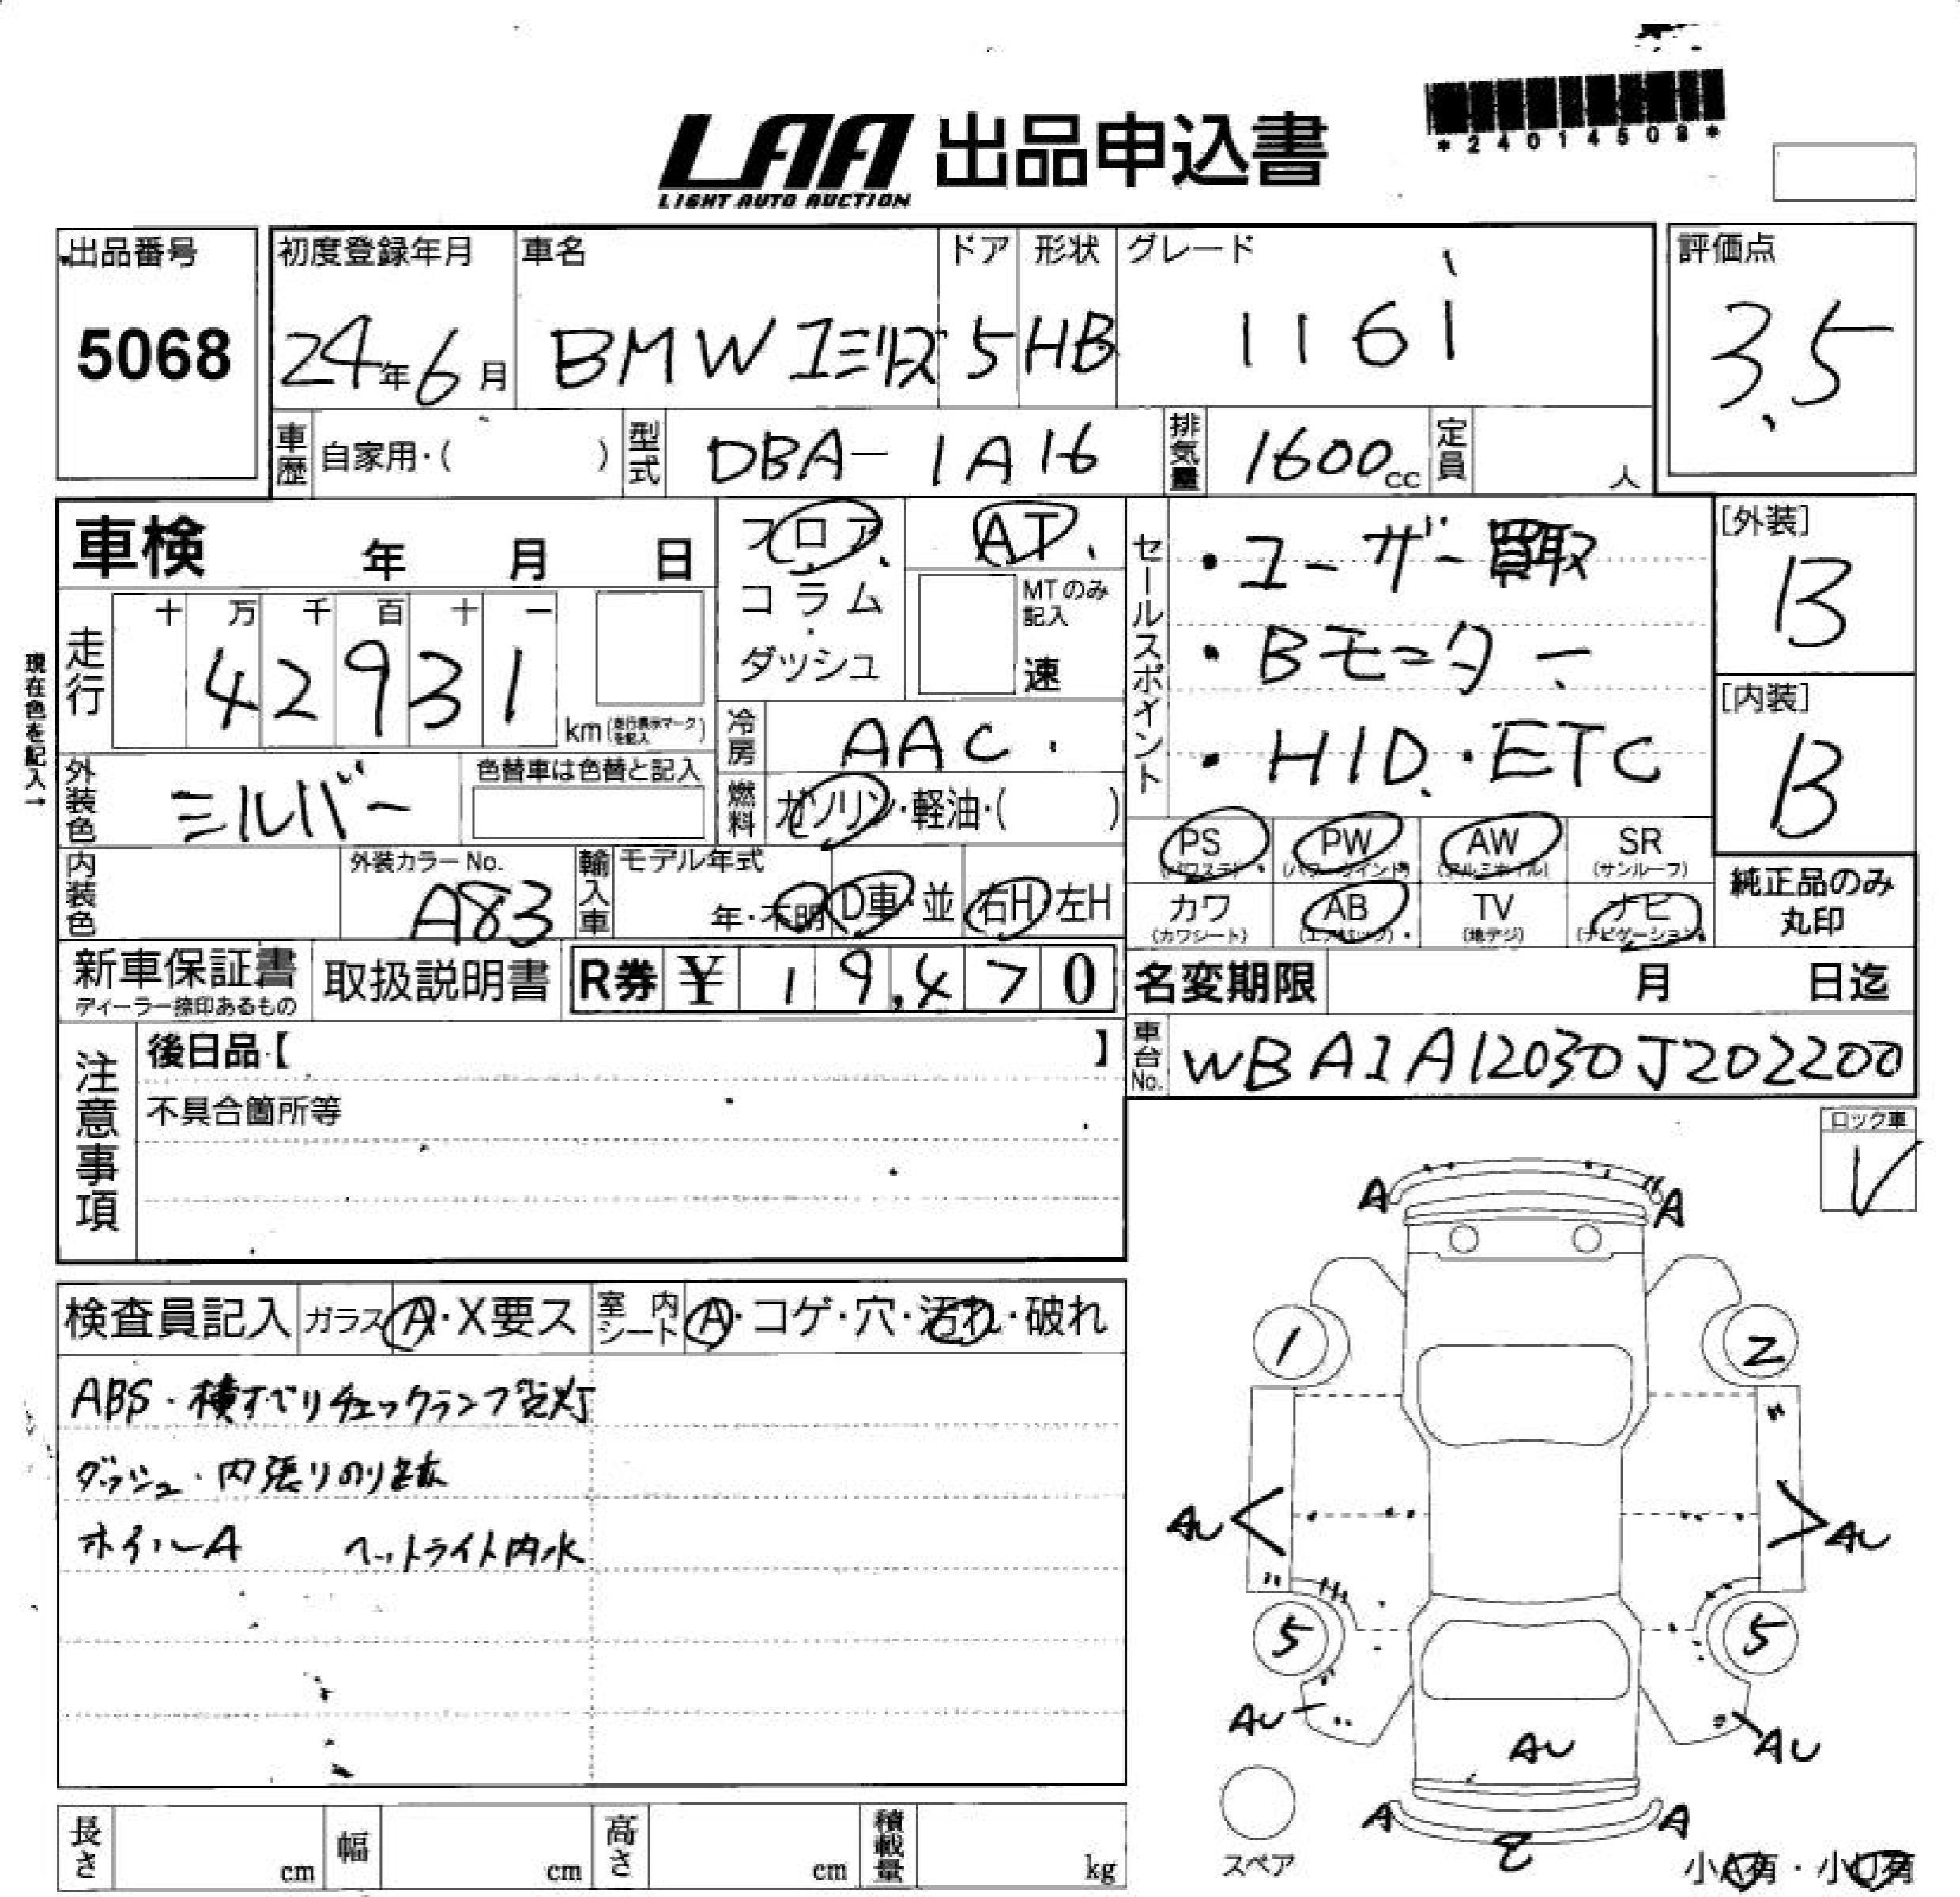 *24014508*
LAA 出品申込書
LIGHT AUTO AUCTION
出品番号
5068
初度登録年月
24年6月
車名
BMW 1シリーズ
ドア
5
形状
HB
グレード
116i
評価点
3.5
車歴 自家用・( )
型式 DBA-1A16
排気量 1600cc
定員 人
車検 年 月 日
フロア・
コラム・
ダッシュ
AT
MTのみ記入
速
セールスポイント
・ユーザー買取
・Bモニター
・HID・ETC
[外装]
B
[内装]
B
現在色を記入→
走行 十 万 千 百 十 一
42931 km
冷房 AAC
外装色 シルバー
色替車は色替と記入
燃料 ガソリン・軽油・( )
PS (パワステ)
PW (パワーウインド)
AW (アルミホイル)
SR (サンルーフ)
カワ (カワシート)
AB (エアバッグ)
TV (地デジ)
ナビ (ナビゲーション)
純正品のみ
丸印
内装色
外装カラーNo.
A83
輸入車
モデル年式
年・不明
D車・並
右H 左H
新車保証書
ディーラー捺印あるもの
取扱説明書
R券 ¥ 19,470
名変期限 月 日迄
車台No. WBA1A12030J202200
注意事項
後日品【 】
不具合箇所等
ロック車
レ
検査員記入
ガラス A・X要ス
室内シート A・コゲ・穴・汚れ・破れ
ABS・横すべりチェックランプ点灯
ダッシュ・内張りのり跡
ホイールA ヘットライト内水
A A
1 2
AU AU
5 5
AU AU
AU
A A
スペア
小A有・小U有
長さ cm
幅 cm
高さ cm
積載量 kg